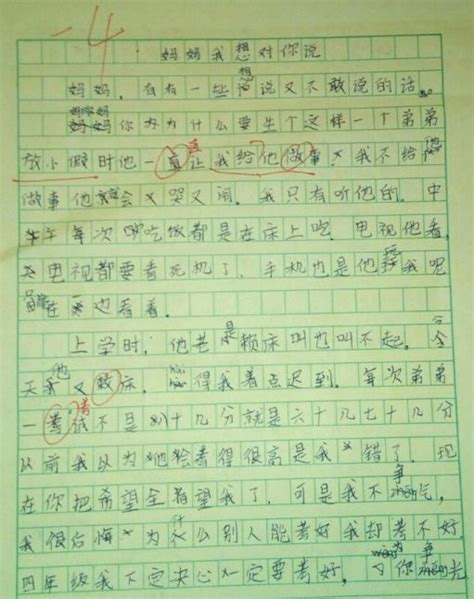 -4
妈妈我想对你说
妈妈,有有一些想说又不敢说的话。
妈妈你为什么要生个这样一个弟弟
放小假时他一直让我给他做事,我不给他
做事他就会又哭又闹。我只有听他的。中
午每次吃饭都是在床上吃。电视他看,
电视都要看死机了。手机也是他我呢
在边看着。
上学时,他老是赖床叫也叫不起。今
天他又赖床。得我着点迟到。每次弟弟
一考试不是八十几分就是六十几七十几分
以前我以为他会考得很高是我错了。现
在你把希望全看望我了。可是我不争气,
我很后悔为什么别人能考好我却考不好。
四年级我下定决心一定要考好,为你争光